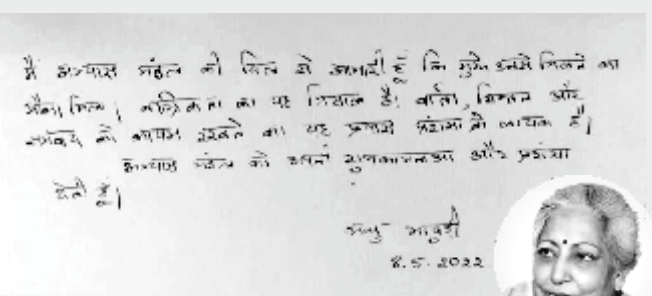 मैं अभ्यास मंडल की दिल से आभारी हूँ कि मुझे इनसे मिलने का
मौका मिला। का यह मिसाल है। वार्ता, चिन्तन और
को कायम रखने का यह प्रयास प्रशंसा के लायक है।
अभ्यास मंडल को अपनी शुभकामनाआ और प्रशंसा
देती हूँ।
मधु भादुड़ी
8.5.2022